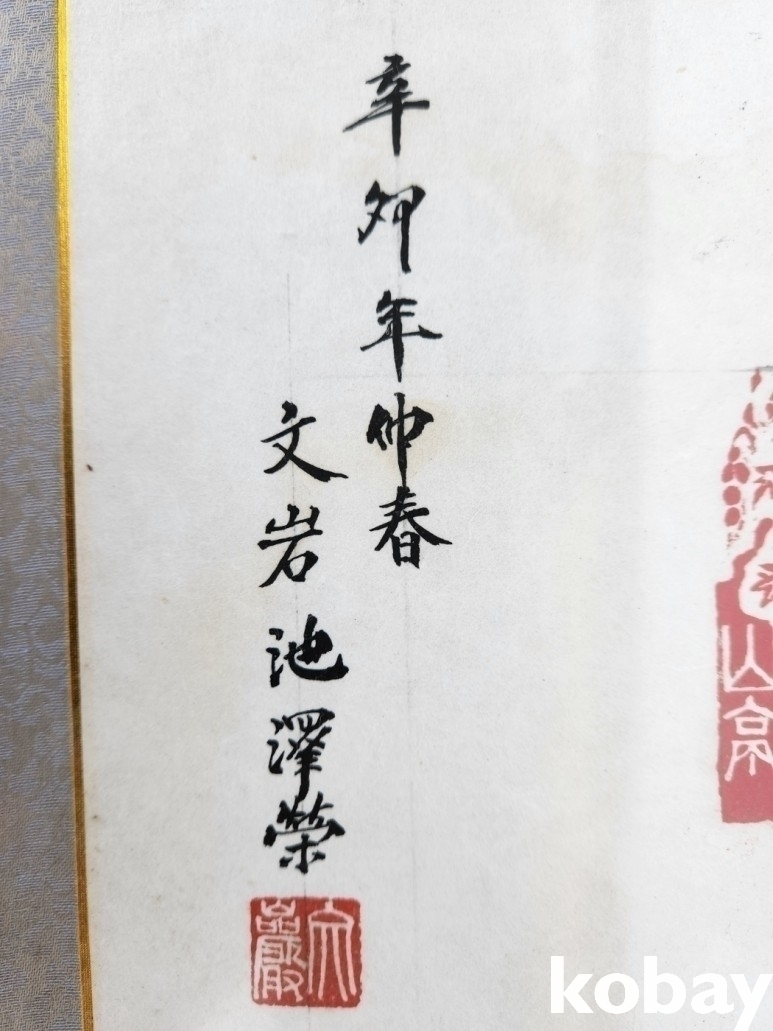 辛卯年仲春
文岩池澤榮
文巖
山房
kobay